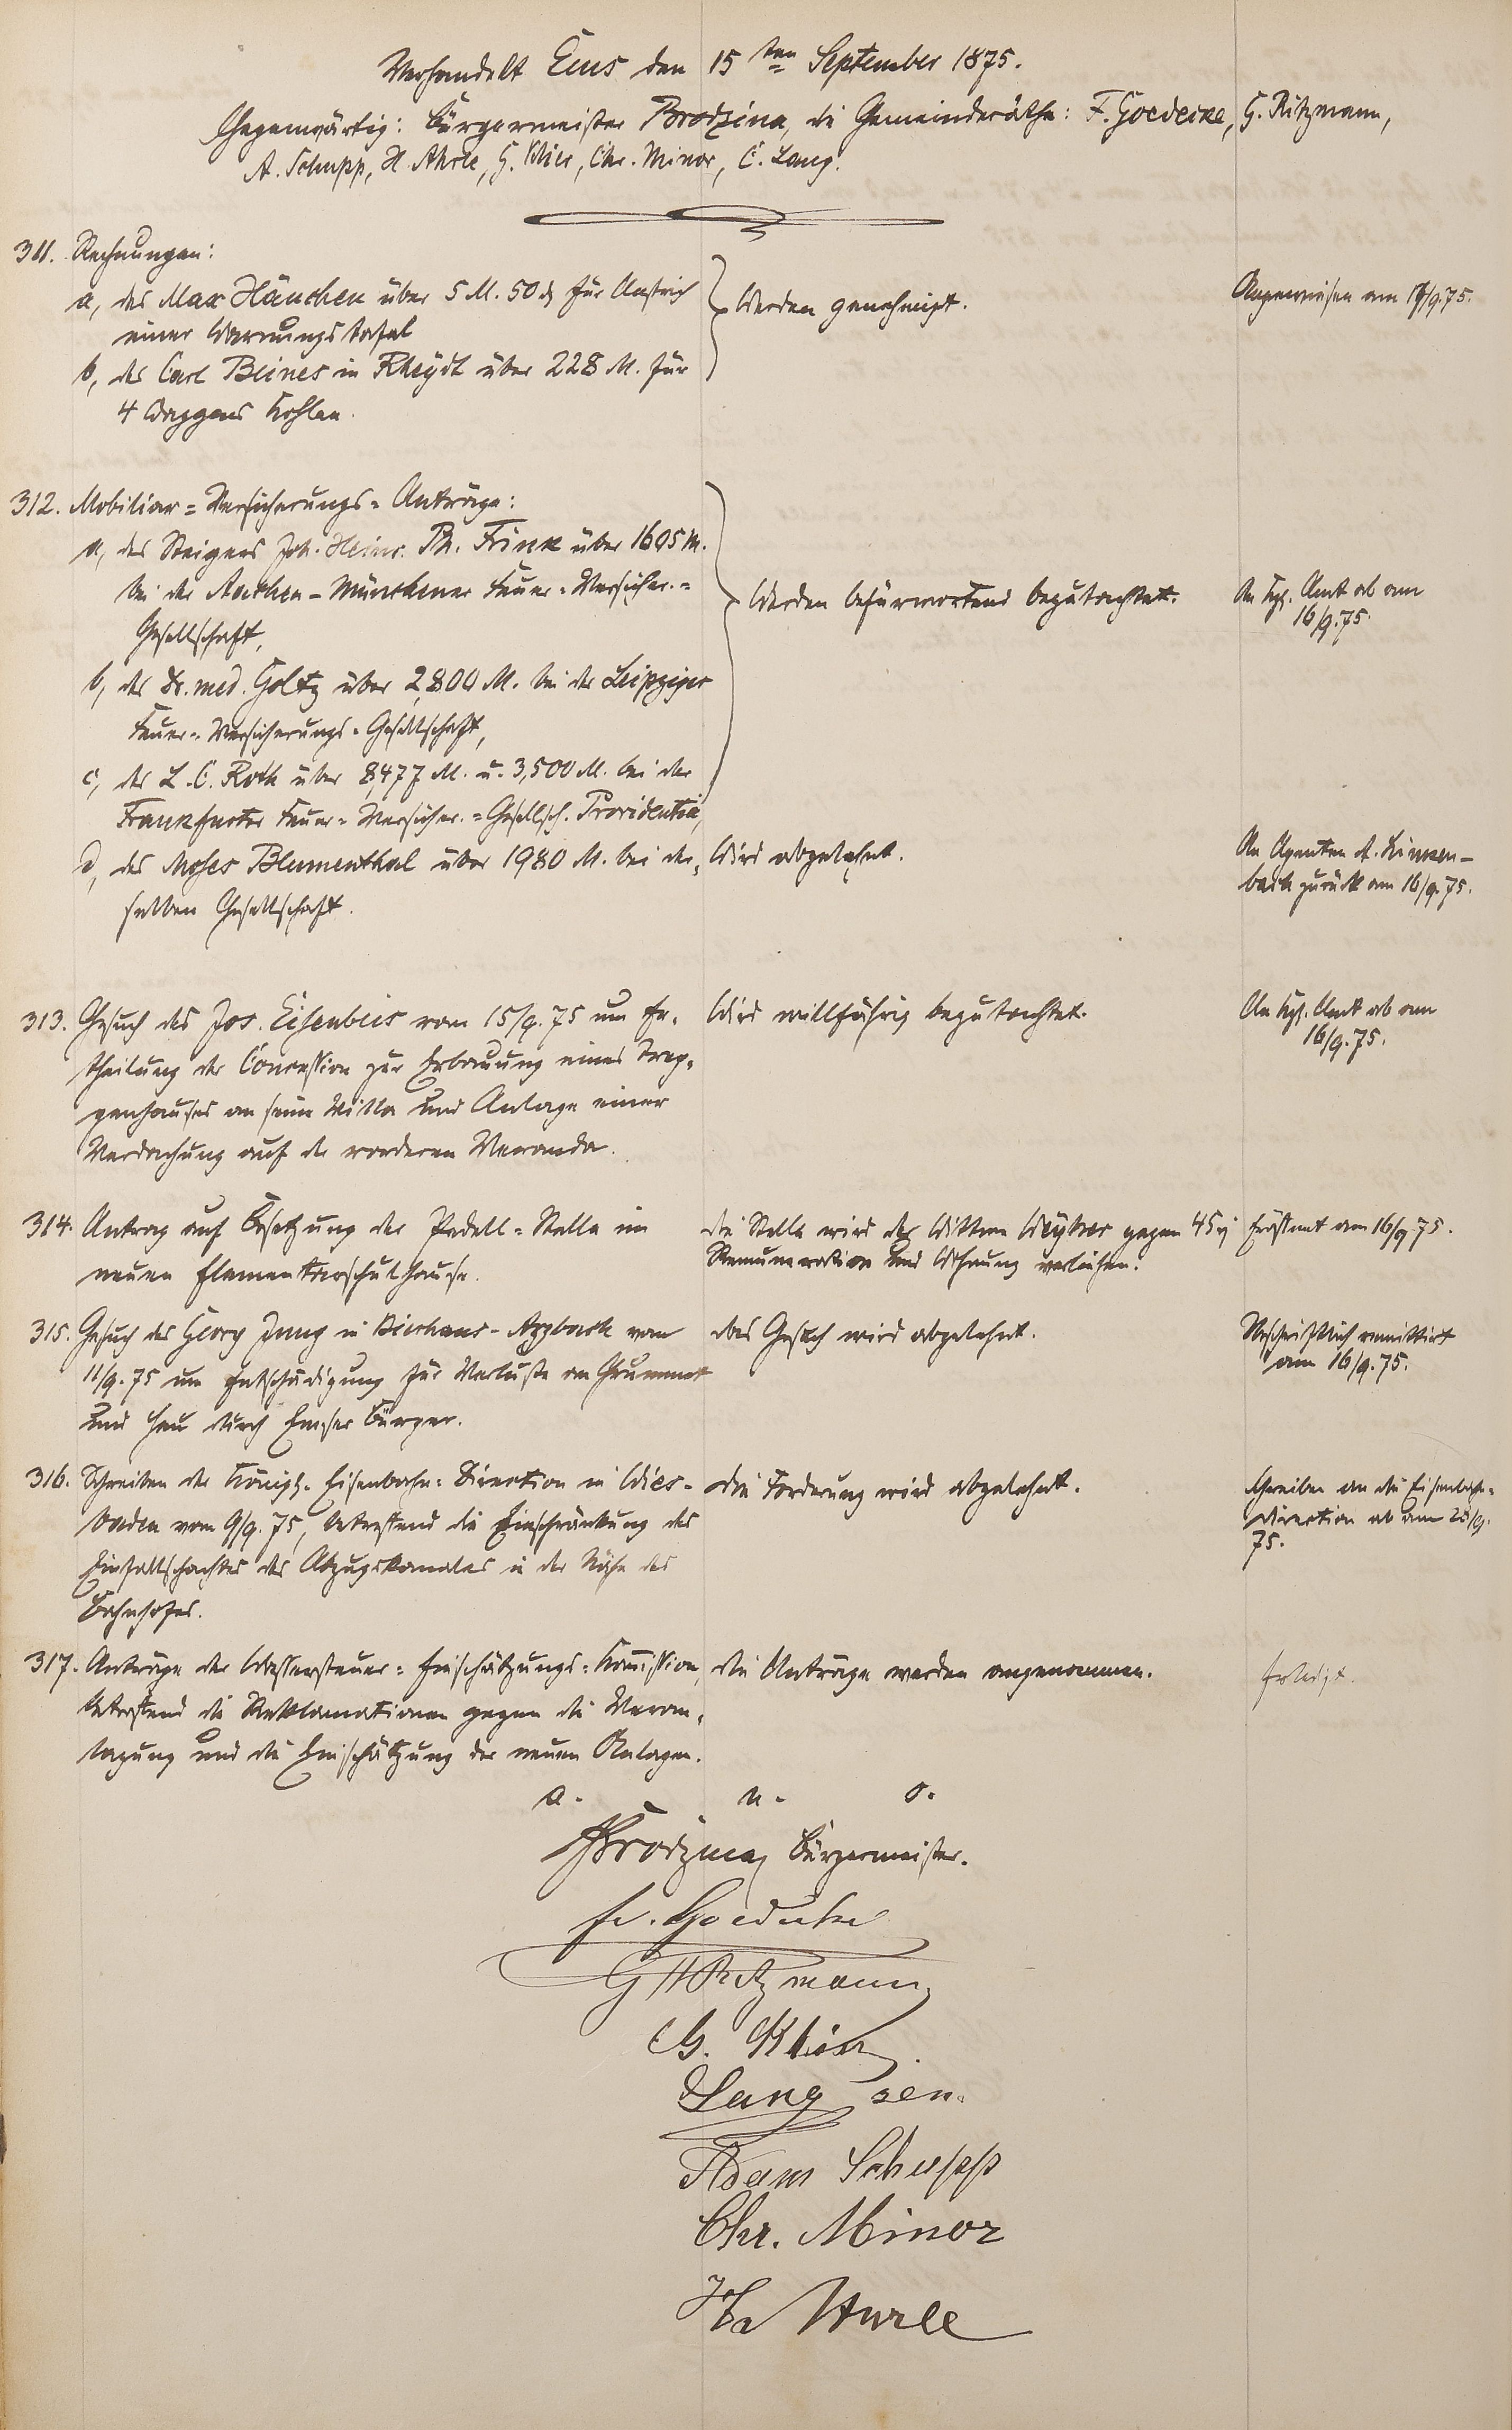 Verhandelt Ems den 15ten September 1875.
Gegenwärtig: Bürgermeister Brodzina, die Gemeinderäthe: F. Goedecke, G. Ritzmann,
A. Schupp, H. Ahrle, G. Klier, Chr. Minor, C. Lang.
311. Rechnungen:
a, des Max Hänchen über 5 M. 50 ₰ für Anstrich
einer Warnungstafel
b, des Carl Beines in Rheydt über 228 M. für
4 Waggons Kohlen.
Werden genehmigt.
Angewiesen am 17/9.75.
312. Mobiliar=Versicherungs=Anträge:
a, des Steigers Joh. Heinr. Ph. Frink über 1605 M.
bei der Aachen-Münchener Feuer=Versicher.=
Gesellschaft,
b, des Dr. med. Goltz über 2,800 M. bei der Leipziger
Feuer=Versicherungs=Gesellschaft,
c, des L. C. Roth über 8,477 M. u. 3,500 M. bei der
Frankfurter Feuer=Versicher.=Gesellsch. Providentia,
Werden befürwortend begutachtet.
An Kgl. Amt ab am
16/9.75.
d, des Moses Blumenthal über 1980 M. bei der=
selben Gesellschaft.
Wird abgelehnt.
An Agenten A. Linken-
bach zurück am 16/9.75.
313. Gesuch des Jos. Eisenbeis vom 15/9.75 um Er=
theilung der Concession zur Erbauung eines Trep=
penhauses an seine Villa und Anlage einer
Verdachung auf der vorderen Veranda.
Wird willfährig begutachtet.
An Kgl. Amt ab am
16/9.75.
314. Antrag auf Besetzung der Pedell=Stelle im
neuen Elementarschulhause.
Die Stelle wird der Wittwe gegen 45
Remuneration und Wohnung verliehen.
Eröffnet am 16/9 75.
315. Gesuch des Georg Jung in Bierhaus-Arzbach vom
11/9.75 um Entschädigung für Verluste an Grummet
und Heu durch Emser Bürger.
Das Gesuch wird abgelehnt.
Abschriftlich remittirt
am 16/9.75.
316. Schreiben der Königl. Eisenbahn=Direction in Wies-
baden vom 9/9.75, betreffend die Einschränkung des
Einfallschachtes des Abzugskanales in der Nähe des
Bahnhofes.
Die Forderung wird abgelehnt.
Schreiben an die Eisenbahn=
direction ab am 28/9.
75.
317. Anträge der Wassersteuer=Einschätzungs=Kommission,
betreffend die Reklamationen gegen die Veran=
lagung und die Einschätzung der neuen Anlagen.
Die Anträge werden angenommen.
Erledigt.
a. u. s.
Brodzina, Bürgermeister.
Fr. Goedecke
G H Ritzmann
G. Klier
Lang sen.
Adam Schupp
Chr. Minor